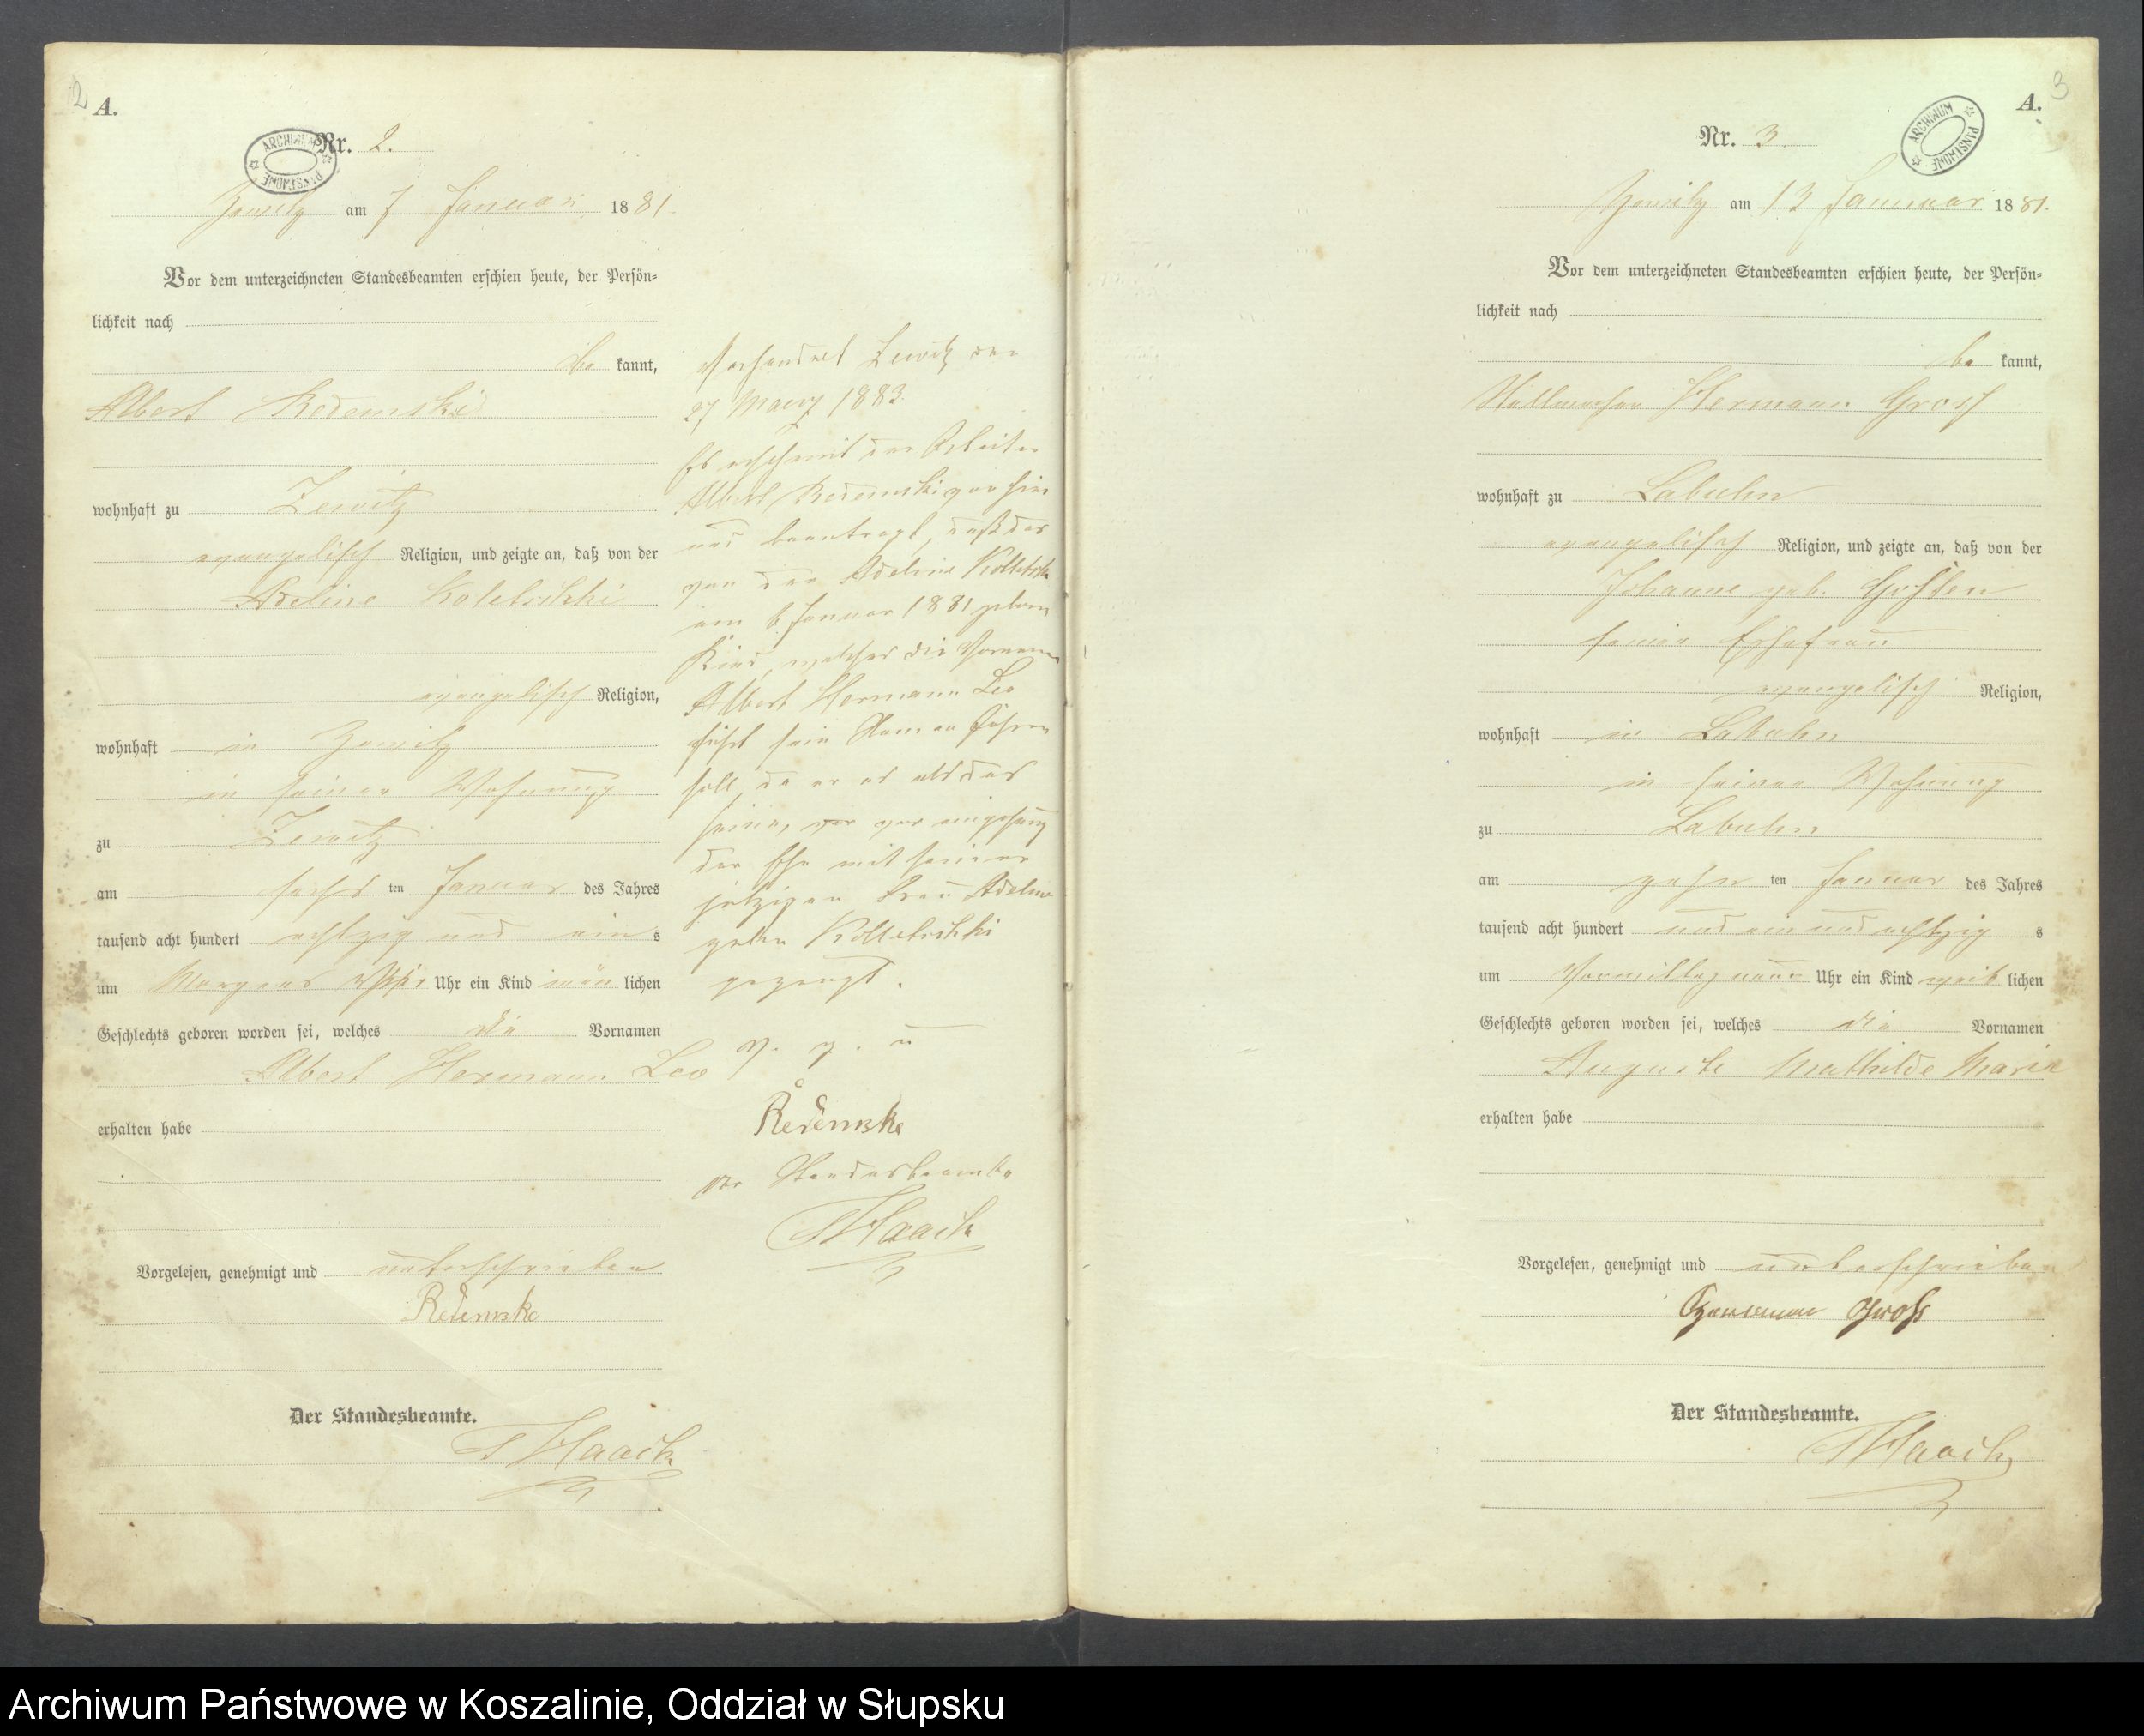 2
A.
ARCHIWUM PAŃSTWOWE
Nr. 2.
Zewitz am 7 Januar 1881.
Vor dem unterzeichneten Standesbeamten erschien heute, der Persön-
lichkeit nach
be kannt,
Albert Redemski
wohnhaft zu Zewitz
evangelisch Religion, und zeigte an, daß von der
Adeline Koletschki
evangelisch Religion,
wohnhaft in Zewitz
in seiner Wohnung
zu Zewitz
am sechs ten Januar des Jahres
tausend acht hundert achtzig und ein s
um Morgens Uhr ein Kind män lichen
Geschlechts geboren worden sei, welches die Vornamen
Albert Hermann Leo
erhalten habe
Vorgelesen, genehmigt und unterschrieben
Redemske
Der Standesbeamte.
Haack
Verhandelt Zewitz den
27 Maerz 1883.
Es erscheint der Arbeiter
Albert Redemski von hier
und beantragt, daß das
von der Adeline Kolletschki
am 6 Januar 1881 geborene
Kind, welches die Vornamen
Albert Hermann Leo
führt sein Namen führen
soll, da er es als das
seine, vor eingehung
der Ehe mit seiner
jetzigen Frau Adeline
geborn Kolletschki
gezeugt.
v. g. u
Redemske
Der Standesbeamte
Haack
3
A.
ARCHIWUM PAŃSTWOWE
Nr. 3.
Zewitz am 13 Januar 1881.
Vor dem unterzeichneten Standesbeamten erschien heute, der Persön-
lichkeit nach
be kannt,
Stellmacher Hermann Gross
wohnhaft zu Labuhn
evangelisch Religion, und zeigte an, daß von der
Johanne geb.
seiner Ehefrau
evangelisch Religion,
wohnhaft in Labuhn
in seiner Wohnung
zu Labuhn
am zehn ten Januar des Jahres
tausend acht hundert und ein und achtzig s
um Vormittag neun Uhr ein Kind weib lichen
Geschlechts geboren worden sei, welches die Vornamen
Auguste Mathilde Marie
erhalten habe
Vorgelesen, genehmigt und unterschrieben
Hermann Gross
Der Standesbeamte.
Haack
Archiwum Państwowe w Koszalinie, Oddział w Słupsku